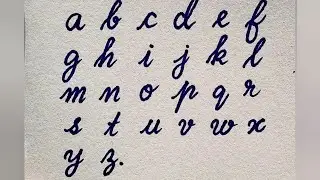 a b c d e f
g h i j k l
m n o p q r
s t u v w x
y z.